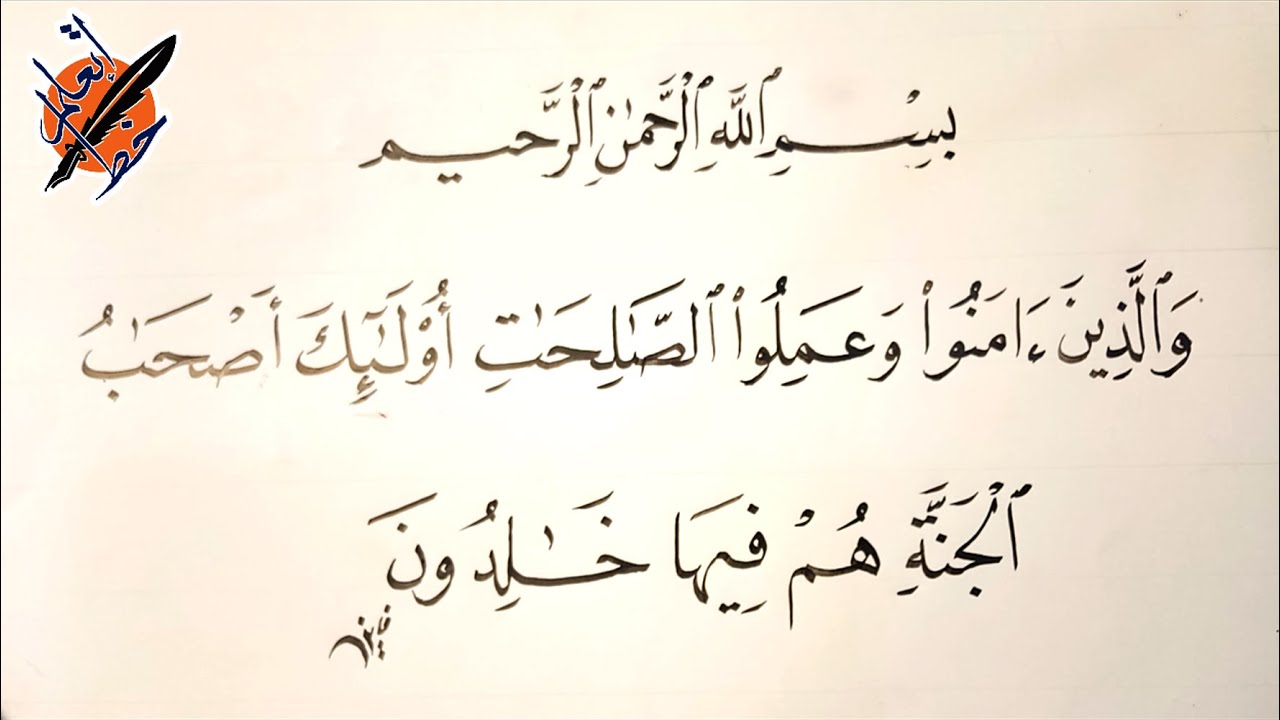 إتعلم
خط
بِسْمِ ٱللَّهِ ٱلْرَّحْمَٰنِ ٱلْرَّحيم
وَٱلَّذِينَ ءَامَنُوا۟ وَعَمِلُوا۟ ٱلصَّٰلِحَٰتِ أُو۟لَٰٓئِكَ أَصْحَٰبُ
ٱلْجَنَّةِ هُمْ فِيهَا خَٰلِدُونَ